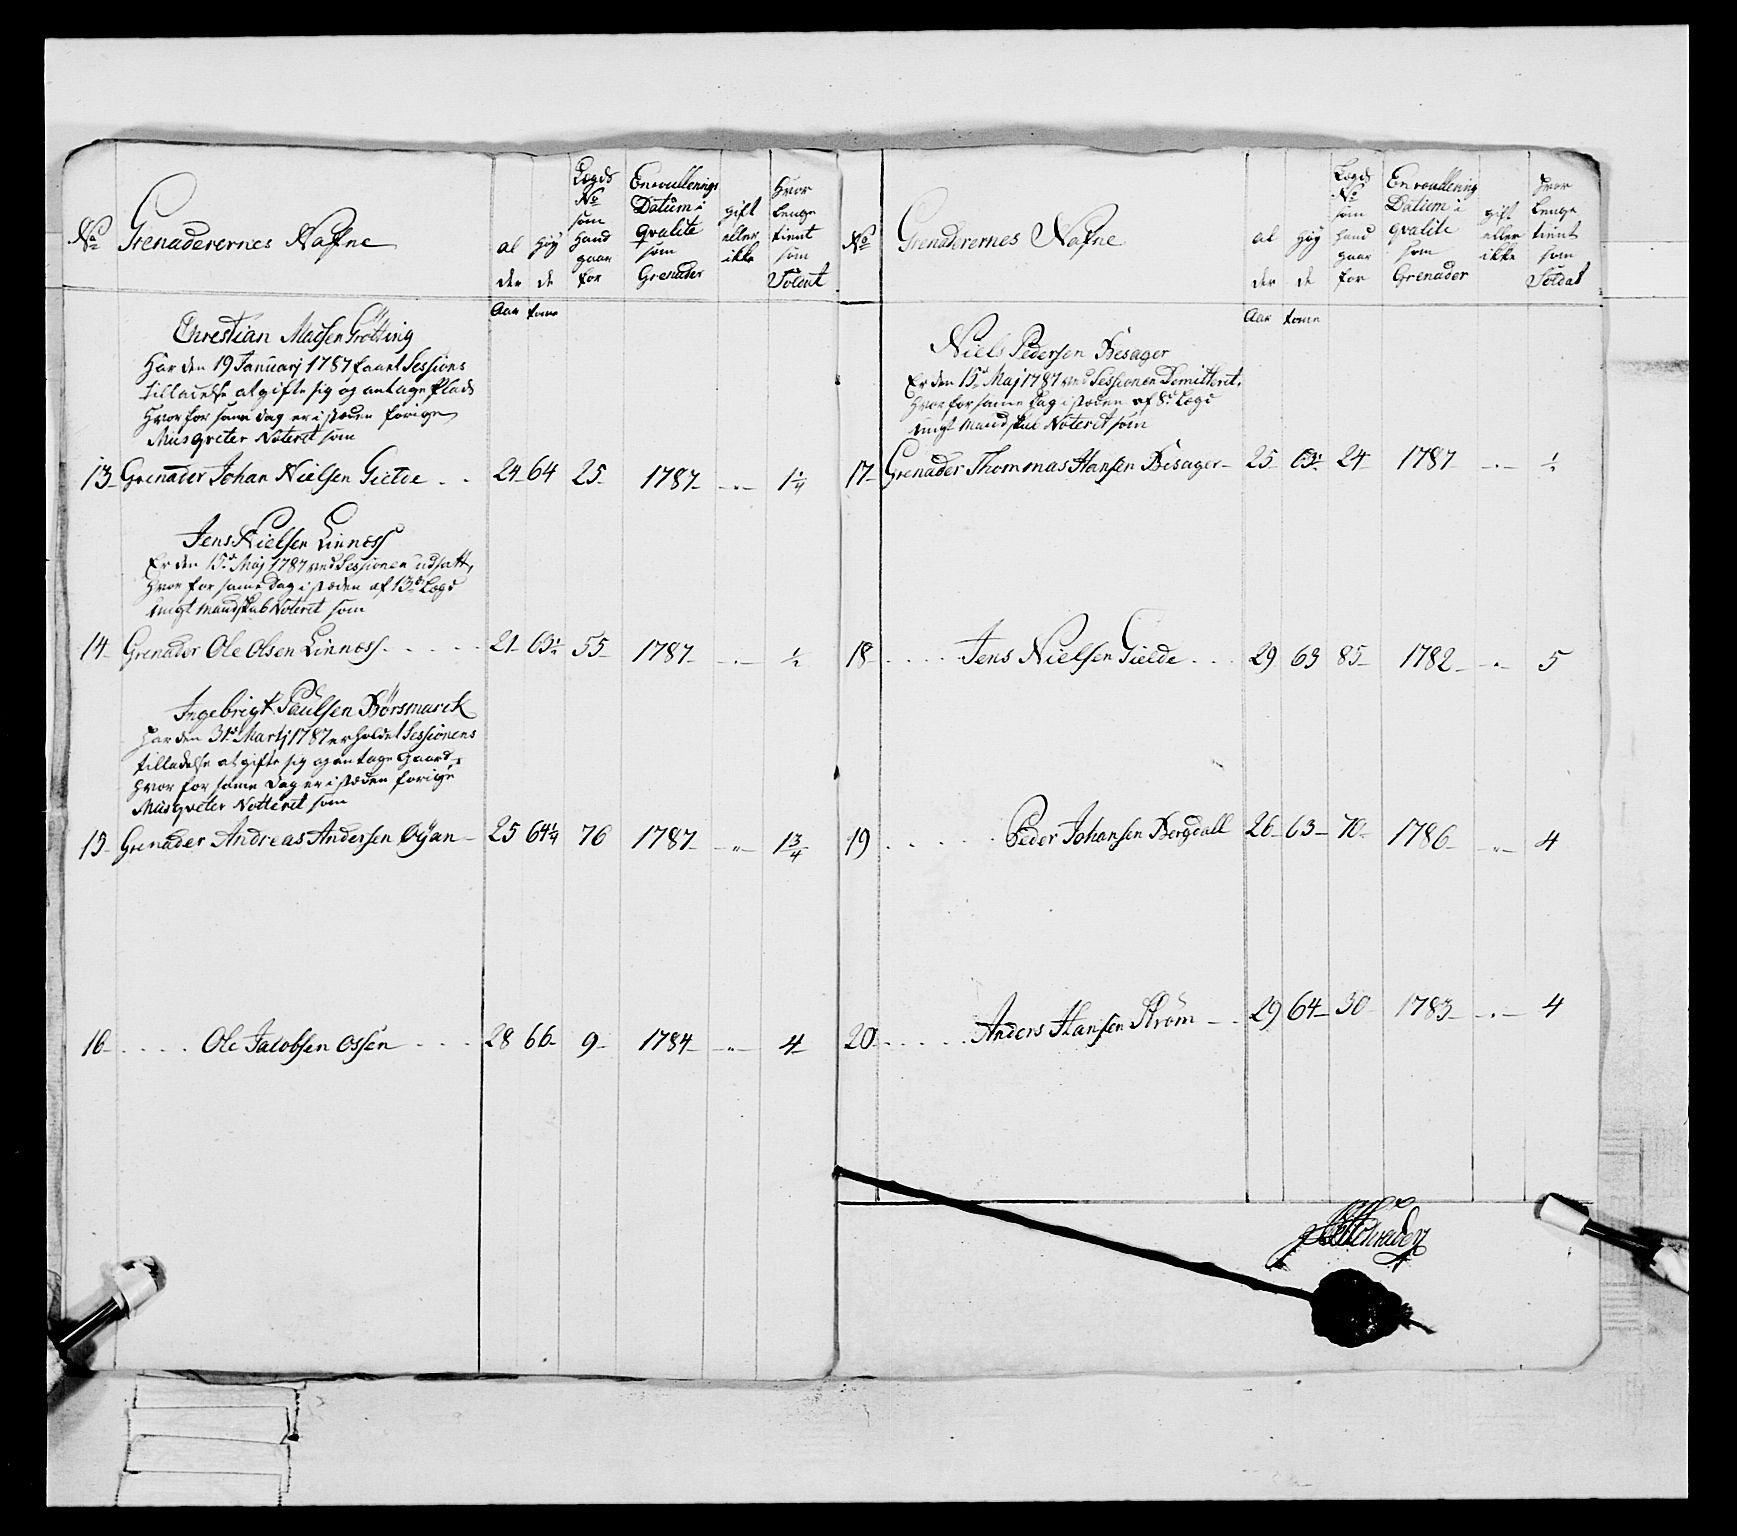 No
Grenaderernes Nafne
al
der
høy
de
Lægds
No
som
hand
gaar
for
Enroullerings
Datum i
qvalite
som
Grenader
gift
eller
ikke
Hvor
lenge
tient
som
Soldat
Aar
tome
Christian Madsen Grøtting
Har den 19 Januarj 1787 faaet Sessions
tilladelse at gifte sig og antage Plads
Hvor for same dag er i stæden forige
Musqveter Noteret som
13 Grenader Johan Nielsen Gielde 24 64 25 1787 " 1 1/4
Jens Nielsen Linness
Er den 15de Maj 1787 ved Sessionen udsatt,
Hvor for same dag i stæden af 13de Lægd
ungt mandskab Noteret som
14 Grenader Ole Olsen Linness 21 63 1/2 55 1787 " 1/2
Ingebrigt Paulsen Børsmarck
Har den 31te Martj 1787 erholdet Sessionens
tilladelse at gifte sig og antage Gaard,
hvor for same Dag er i stæden forige
Musqveter Notteret som
15 Grenader Andreas Andersen Øyan 25 64 1/4 76 1787 " 1 3/4
16 Ole Jacobsen Ossen 28 66 9 1784 " 4
No
Grenaderernes Nafne
al
der
høy
de
Lægds
No
som
hand
gaar
for
Enroullering
Datum i
qvalite
som
Grenader
gift
eller
ikke
Hvor
lenge
tient
som
Soldat
Aar
tome
Niels Pedersen Besager
Er den 15de Maj 1787 ved Sessionen Dimitteret,
Hvor for same Dag i stæden af 8de Lægd
ungt Mandskab Noteret som
17 Grenader Thommas Hansen Besager 25 63 1/2 24 1787 " 1/2
18 Jens Nielsen Gielde 29 63 85 1782 " 5
19 Peder Johansen Bergdall 26 63 70 1786 " 4
20 Anders Hansen Strøm 29 64 30 1783 " 4